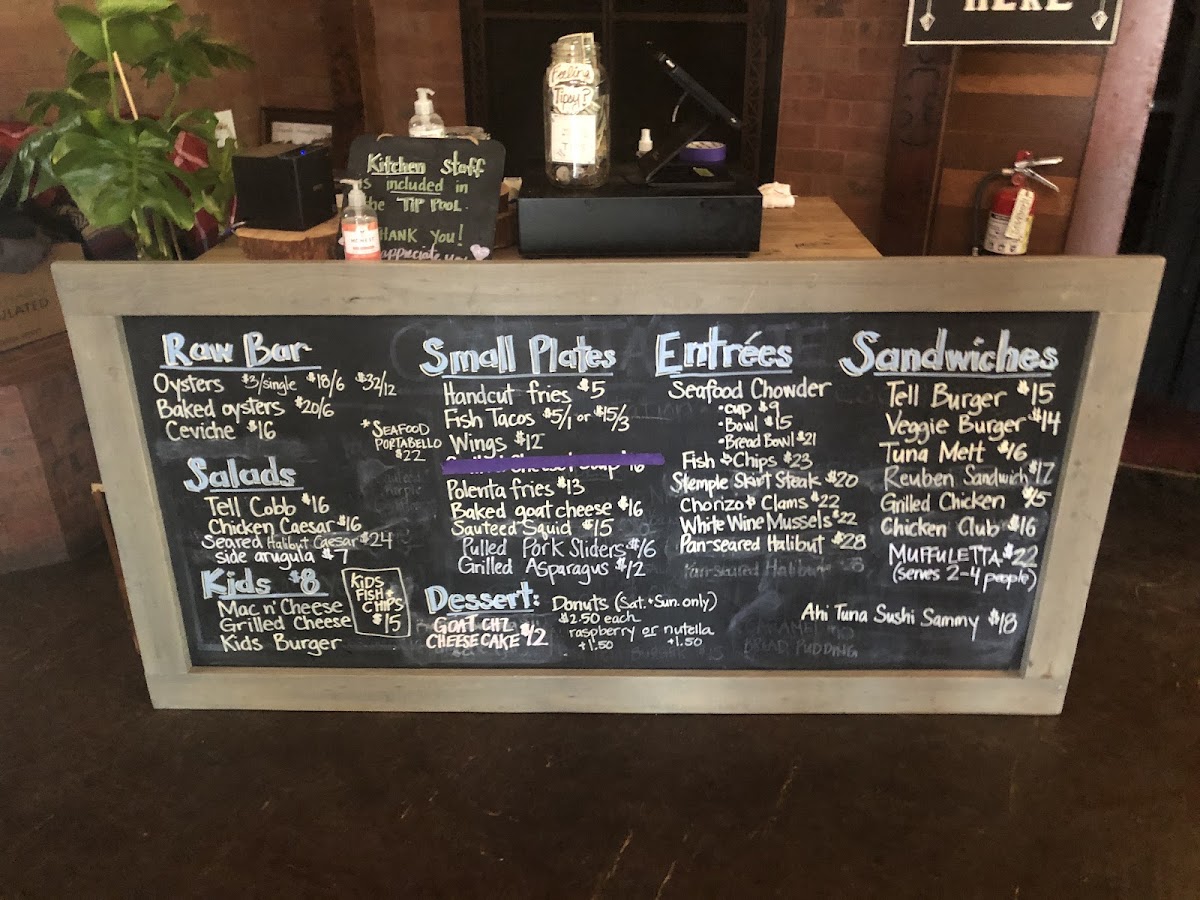 HERE
Feelin'
Tipsy?
Kitchen Staff
is included in
the TIP POOL.
THANK YOU!
appreciate you
ULATED
Raw Bar
Oysters $3/single $18/6 $32/12
Baked oysters $20/6
Ceviche $16
* SEAFOOD
PORTABELLO
$22
Salads
Tell Cobb $16
Chicken Caesar $16
Seared Halibut Caesar $24
side arugula $7
Kids $8
Mac n' Cheese
Grilled Cheese
Kids Burger
KIDS
FISH +
CHIPS
$15
Small Plates
Handcut fries $5
Fish Tacos $5/1 or $15/3
Wings $12
Polenta fries $13
Baked goat cheese $16
Sauteed Squid $15
Pulled Pork Sliders $16
Grilled Asparagus $12
Dessert:
GOAT CHZ
CHEESECAKE $12
Donuts (Sat. + Sun. only)
$2.50 each
raspberry or nutella
+1.50 +1.50
Entrées
Seafood Chowder
• cup $9
• Bowl $15
• Bread Bowl $21
Fish + Chips $23
Stemple Skirt Steak $20
Chorizo + Clams $22
White Wine Mussels $22
Pan-seared Halibut $28
Sandwiches
Tell Burger $15
Veggie Burger $14
Tuna Melt $16
Reuben Sandwich $17
Grilled Chicken $15
Chicken Club $16
MUFFULETTA $22
(serves 2-4 people)
Ahi Tuna Sushi Sammy $18